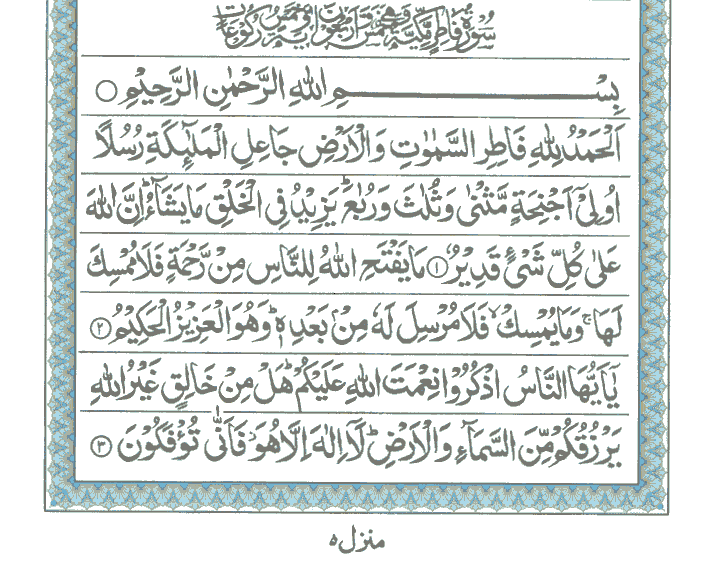 سُوْرَةُ فَاطِرٍ مَّكِّيَّةٌ وَّهِيَ خَمْسٌ وَّاَرْبَعُوْنَ اٰيَةً وَّخَمْسُ رُكُوْعَاتٍ
بِسْمِ اللّٰهِ الرَّحْمٰنِ الرَّحِيْمِ ○
اَلْحَمْدُ لِلّٰهِ فَاطِرِ السَّمٰوٰتِ وَالْاَرْضِ جَاعِلِ الْمَلٰٓئِكَةِ رُسُلًا
اُولِيْۤ اَجْنِحَةٍ مَّثْنٰى وَثُلٰثَ وَرُبٰعَ ؕ يَزِيْدُ فِي الْخَلْقِ مَا يَشَآءُ ؕ اِنَّ اللّٰهَ
عَلٰى كُلِّ شَيْءٍ قَدِيْرٌ ۝۱ مَا يَفْتَحِ اللّٰهُ لِلنَّاسِ مِنْ رَّحْمَةٍ فَلَا مُمْسِكَ
لَهَا ۚ وَمَا يُمْسِكْ ۙ فَلَا مُرْسِلَ لَهٗ مِنْۢ بَعْدِهٖ ؕ وَهُوَ الْعَزِيْزُ الْحَكِيْمُ ۝۲
يٰۤاَيُّهَا النَّاسُ اذْكُرُوْا نِعْمَتَ اللّٰهِ عَلَيْكُمْ ؕ هَلْ مِنْ خَالِقٍ غَيْرُ اللّٰهِ
يَرْزُقُكُمْ مِّنَ السَّمَآءِ وَالْاَرْضِ ؕ لَاۤ اِلٰهَ اِلَّا هُوَ ۖ فَاَنّٰى تُؤْفَكُوْنَ ۝۳
منزل ۵